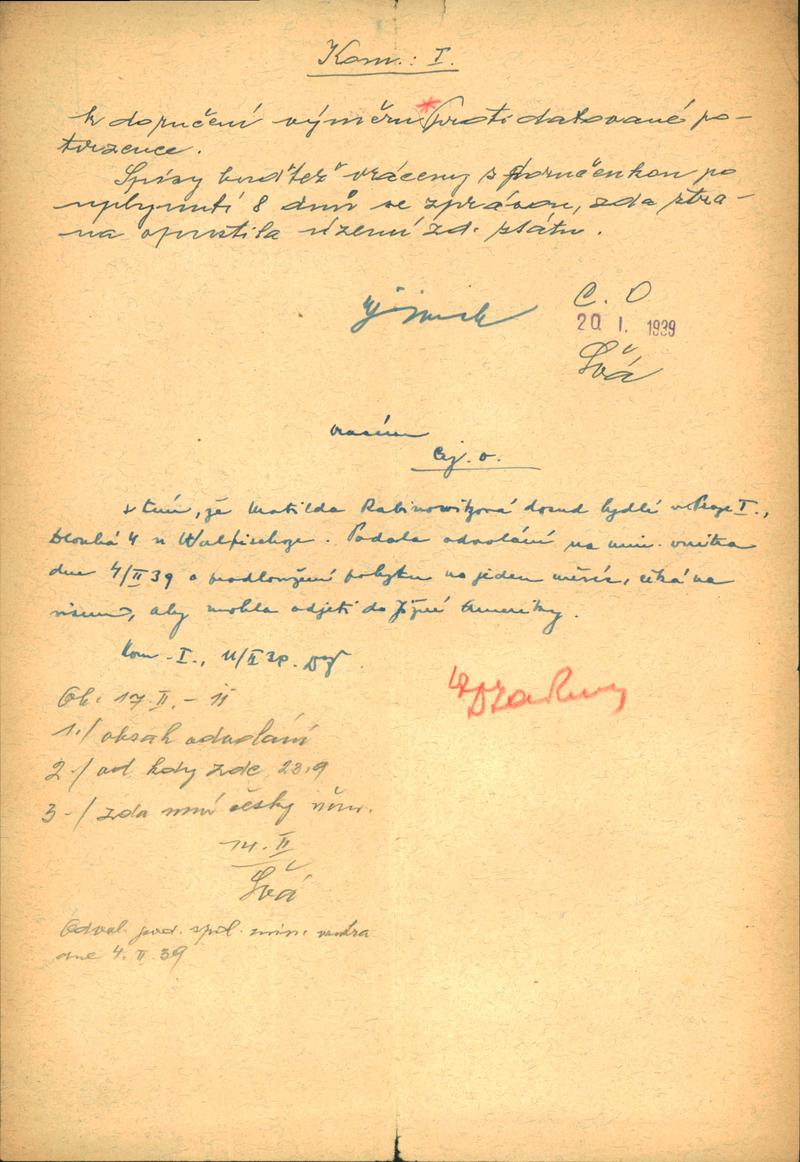 Kom.: I.
k doručení výměru proti datované po-
tvrzence.
Spisy buďtež vráceny s doručenkou po
uplynutí 8 dnů se zprávou, zda stra-
na opustila území zd. státu.
C. O
20. I. 1939
Švá
vracím
s tím, že Matilda Rabinowitzová dosud bydlí v Praze I.,
Dlouhá 4 u Walfischove. Podala odvolání na min. vnitra
dne 4/II 39 o prodloužení pobytu na jeden měsíc, čeká na
visum, aby mohla odjeti do Jižní Ameriky.
Kom. I., 11/II 39.
Ob. 17. II. - 11
1./ obsah odvolání
2./ od kdy zde
3./ zda umí česky něm.
14. II
Švá
Odvol. pod. min. vnitra
dne 4. II. 39